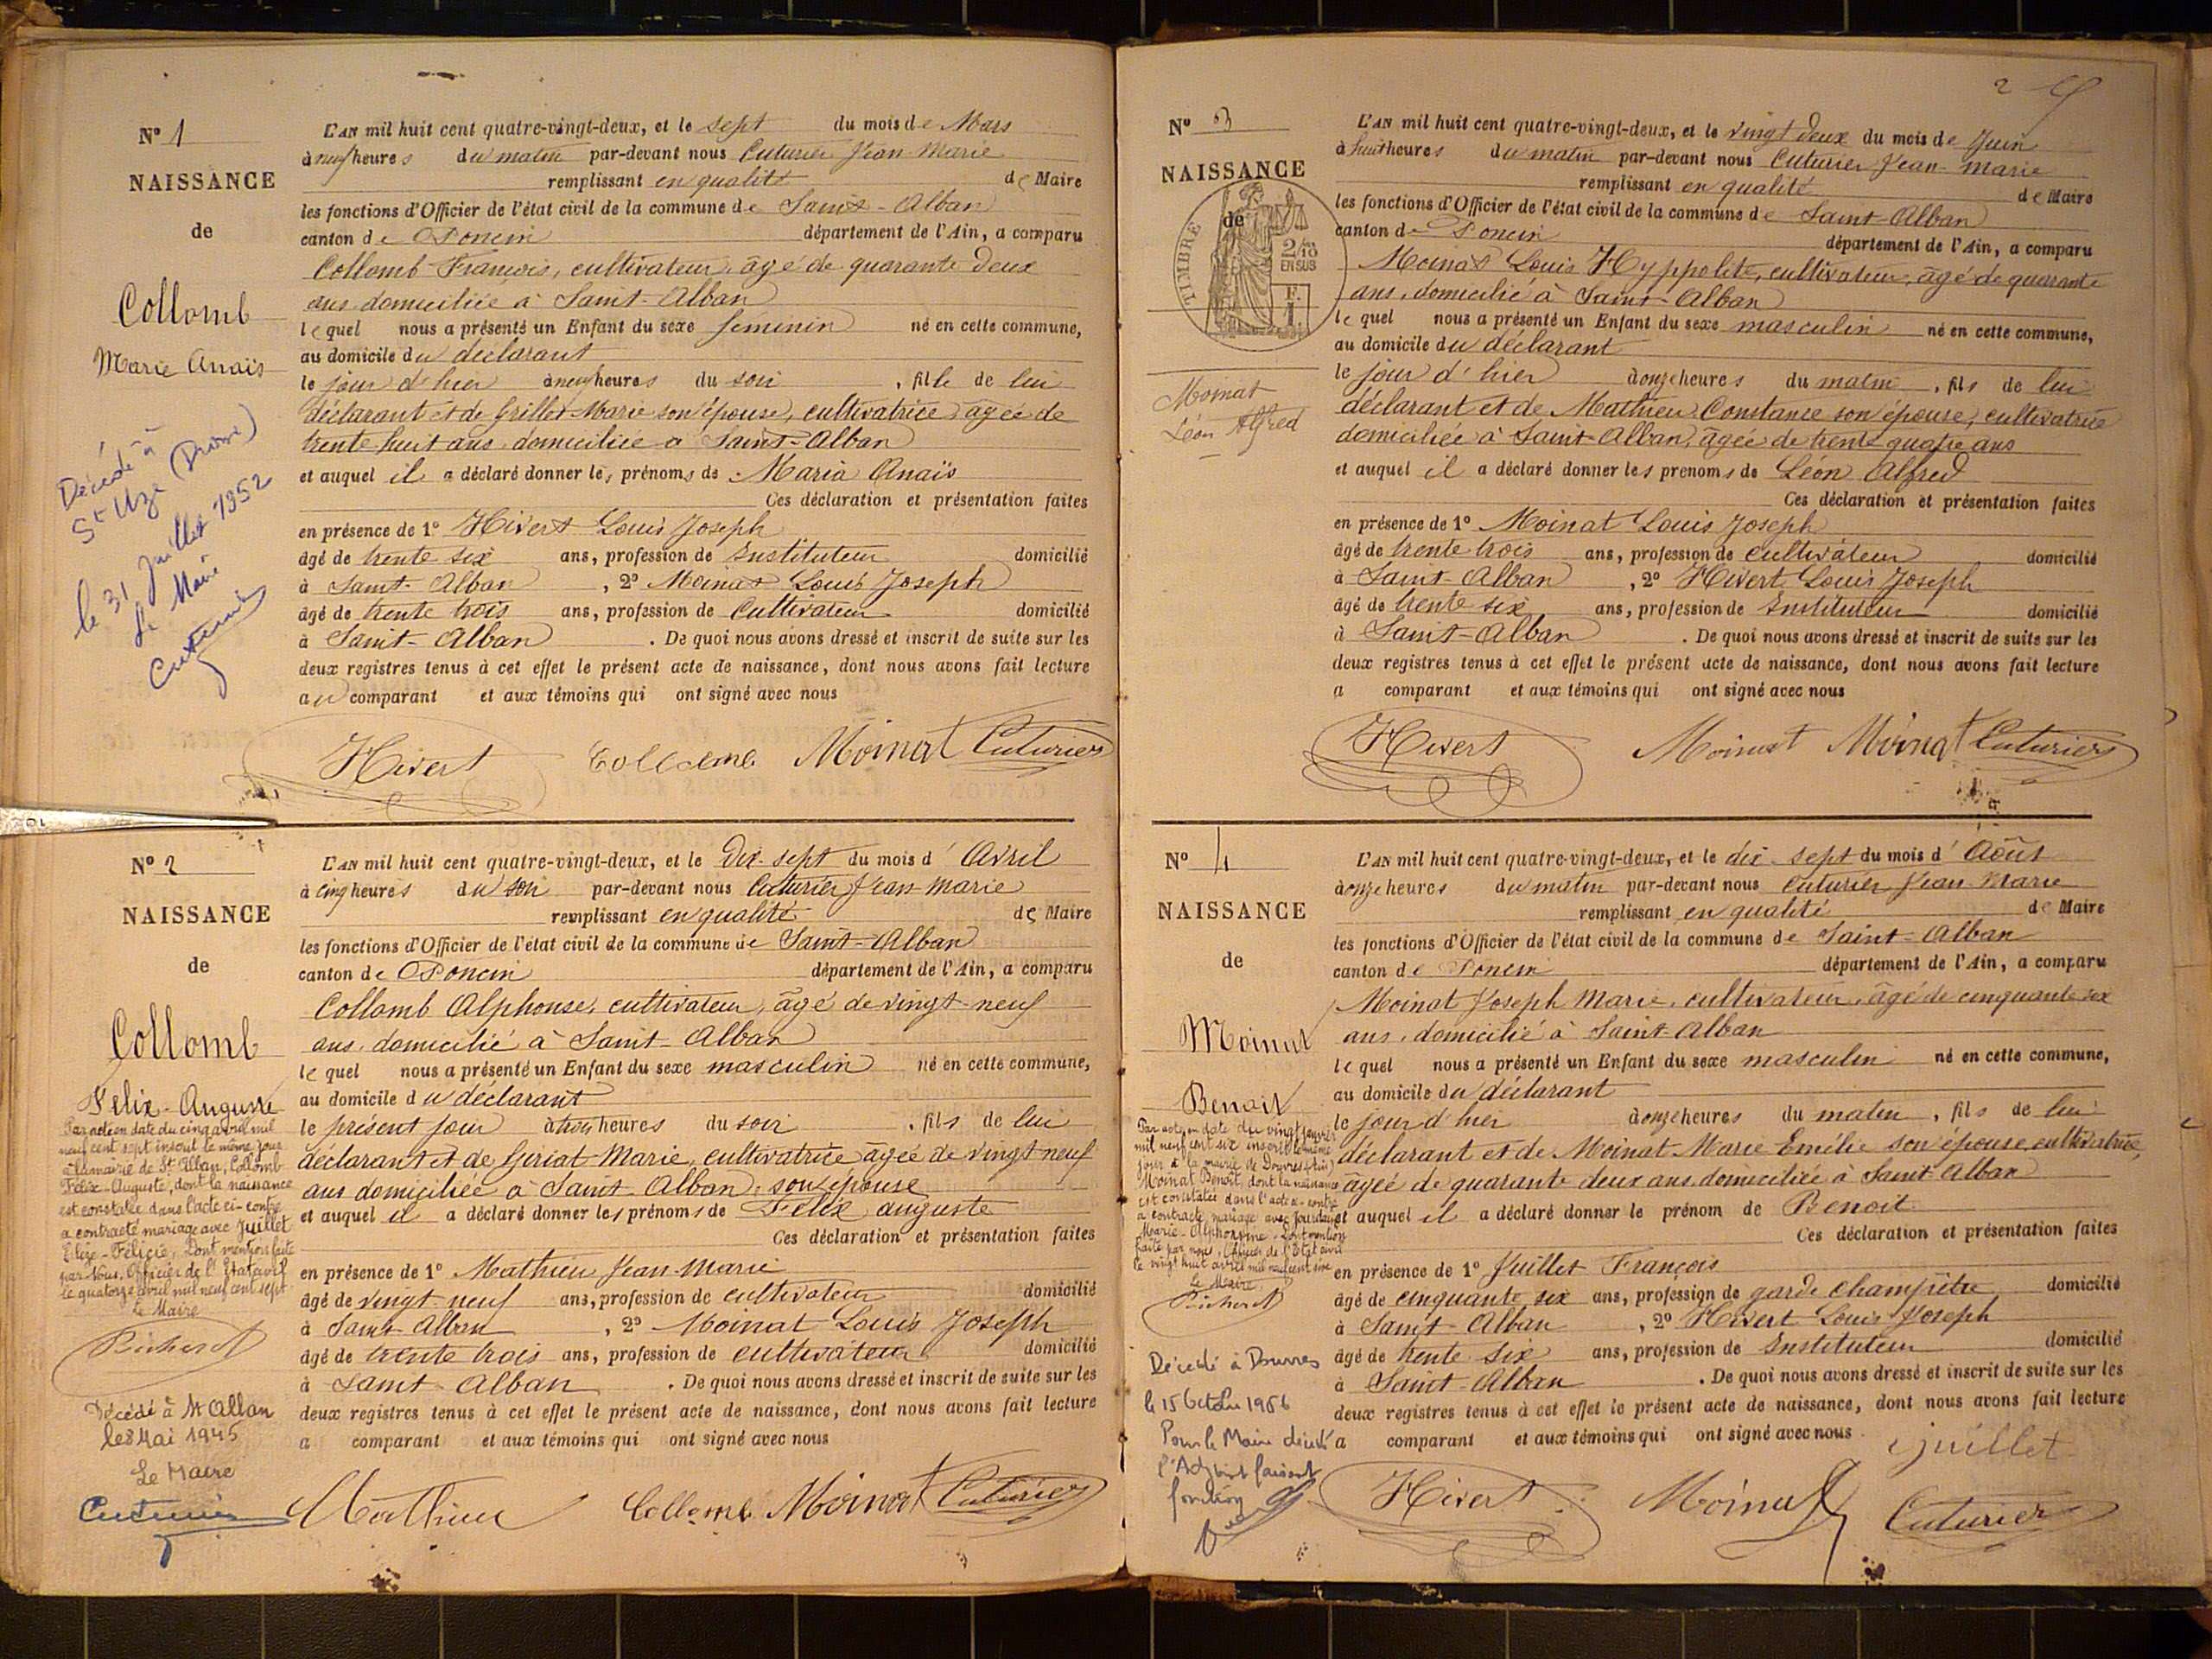 Nº 1
NAISSANCE
de
Collomb
Marie Anaïs
Décédé à
St Uze (Drôme)
le 31 Juillet 1952
Le Maire
Cuturier
L'AN mil huit cent quatre-vingt-deux, et le sept du mois de Mars
à neuf heures du matin par-devant nous Cuturier Jean Marie
remplissant en qualité de Maire
les fonctions d'Officier de l'état civil de la commune de Saint-Alban
canton de Poncin département de l'Ain, a comparu
Collomb François, cultivateur, âgé de quarante deux
ans domicilié à Saint-Alban
lequel nous a présenté un Enfant du sexe féminin né en cette commune,
au domicile du déclarant
le jour d'hier à neuf heures du soir, fille de lui
déclarant et de Grillet Marie son épouse, cultivatrice âgée de
trente huit ans domiciliée à Saint-Alban
et auquel il a déclaré donner les prénoms de Maria Anaïs
Ces déclaration et présentation faites
en présence de 1º Hivert Louis Joseph
âgé de trente six ans, profession de Instituteur domicilié
à Saint-Alban, 2º Moinat Louis Joseph
âgé de trente trois ans, profession de Cultivateur domicilié
à Saint-Alban. De quoi nous avons dressé et inscrit de suite sur les
deux registres tenus à cet effet le présent acte de naissance, dont nous avons fait lecture
au comparant et aux témoins qui ont signé avec nous
Hivert Collomb Moinat Cuturier
Nº 2
NAISSANCE
de
Collomb
Félix-Auguste
Par acte en date du cinq avril mil
neuf cent sept inscrit le même jour
à la mairie de St Alban, Collomb
Félix-Auguste, dont la naissance
est constatée dans l'acte ci-contre
a contracté mariage avec Juillet
Elize-Félicie. Dont mention faite
par Nous, Officier de l'Etat civil
le quatorze avril mil neuf cent sept
Le Maire
Richerot
Décédé à St Alban
le 8 Mai 1945
Le Maire
Cuturier
L'AN mil huit cent quatre-vingt-deux, et le Dix-sept du mois d'Avril
à cinq heures du soir par-devant nous Cuturier Jean-Marie
remplissant en qualité de Maire
les fonctions d'Officier de l'état civil de la commune de Saint-Alban
canton de Poncin département de l'Ain, a comparu
Collomb Alphonse, cultivateur, âgé de vingt-neuf
ans, domicilié à Saint-Alban
lequel nous a présenté un Enfant du sexe masculin né en cette commune,
au domicile du déclarant
le présent jour à trois heures du soir, fils de lui
déclarant et de Geriat Marie, cultivatrice âgée de vingt neuf
ans domiciliée à Saint-Alban, son épouse
et auquel il a déclaré donner les prénoms de Félix auguste
Ces déclaration et présentation faites
en présence de 1º Mathieu Jean-Marie
âgé de vingt neuf ans, profession de cultivateur domicilié
à Saint-Alban, 2º Moinat Louis Joseph
âgé de trente trois ans, profession de cultivateur domicilié
à Saint-Alban. De quoi nous avons dressé et inscrit de suite sur les
deux registres tenus à cet effet le présent acte de naissance, dont nous avons fait lecture
a comparant et aux témoins qui ont signé avec nous
Mathieu Collomb Moinat Cuturier
2
Nº 3
NAISSANCE
de
TIMBRE
2/10
EN SUS
F.
1
Moinat
Léon Alfred
L'AN mil huit cent quatre-vingt-deux, et le vingt deux du mois de Juin
à huit heures du matin par-devant nous Cuturier Jean-Marie
remplissant en qualité de Maire
les fonctions d'Officier de l'état civil de la commune de Saint-Alban
canton de Poncin département de l'Ain, a comparu
Moinat Louis Hyppolite, cultivateur, âgé de quarante
ans, domicilié à Saint-Alban
lequel nous a présenté un Enfant du sexe masculin né en cette commune,
au domicile du déclarant
le jour d'hier à onze heures du matin, fils de lui
déclarant et de Mathieu Constance son épouse, cultivatrice
domiciliée à Saint-Alban, âgée de trente quatre ans
et auquel il a déclaré donner les prénoms de Léon Alfred
Ces déclaration et présentation faites
en présence de 1º Moinat Louis Joseph
âgé de trente trois ans, profession de cultivateur domicilié
à Saint-Alban, 2º Hivert Louis Joseph
âgé de trente six ans, profession de Instituteur domicilié
à Saint-Alban. De quoi nous avons dressé et inscrit de suite sur les
deux registres tenus à cet effet le présent acte de naissance, dont nous avons fait lecture
a comparant et aux témoins qui ont signé avec nous
Hivert Moinat Moinat Cuturier
Nº 4
NAISSANCE
de
Moinat
Benoit
Par acte en date du vingt janvier
mil neuf cent six inscrit le même
jour à la mairie de Douvres (Ain)
Moinat Benoit, dont la naissance
est constatée dans l'acte ci-contre
a contracté mariage avec Jourdan
Marie-Alphonsine. Dont mention
faite par nous, Officier de l'Etat civil
le vingt huit avril mil neuf cent six
Le Maire
Richerot
Décédé à Douvres
le 15 Octobre 1966
Pour le Maire décédé
l'Adjoint faisant
fonction
L'AN mil huit cent quatre-vingt-deux, et le dix-sept du mois d'Août
à onze heures du matin par-devant nous Cuturier Jean Marie
remplissant en qualité de Maire
les fonctions d'Officier de l'état civil de la commune de Saint-Alban
canton de Poncin département de l'Ain, a comparu
Moinat Joseph Marie, cultivateur, âgé de cinquante six
ans, domicilié à Saint Alban
lequel nous a présenté un Enfant du sexe masculin né en cette commune,
au domicile du déclarant
le jour d'hier à onze heures du matin, fils de lui
déclarant et de Moinat Marie Emélie son épouse, cultivatrice,
âgée de quarante deux ans, domiciliée à Saint Alban
et auquel il a déclaré donner le prénom de Benoit
Ces déclaration et présentation faites
en présence de 1º Juillet François
âgé de cinquante six ans, profession de garde champêtre domicilié
à Saint-Alban, 2º Hivert Louis Joseph
âgé de trente six ans, profession de Instituteur domicilié
à Saint-Alban. De quoi nous avons dressé et inscrit de suite sur les
deux registres tenus à cet effet le présent acte de naissance, dont nous avons fait lecture
a comparant et aux témoins qui ont signé avec nous. juillet
Hivert Moinat Cuturier